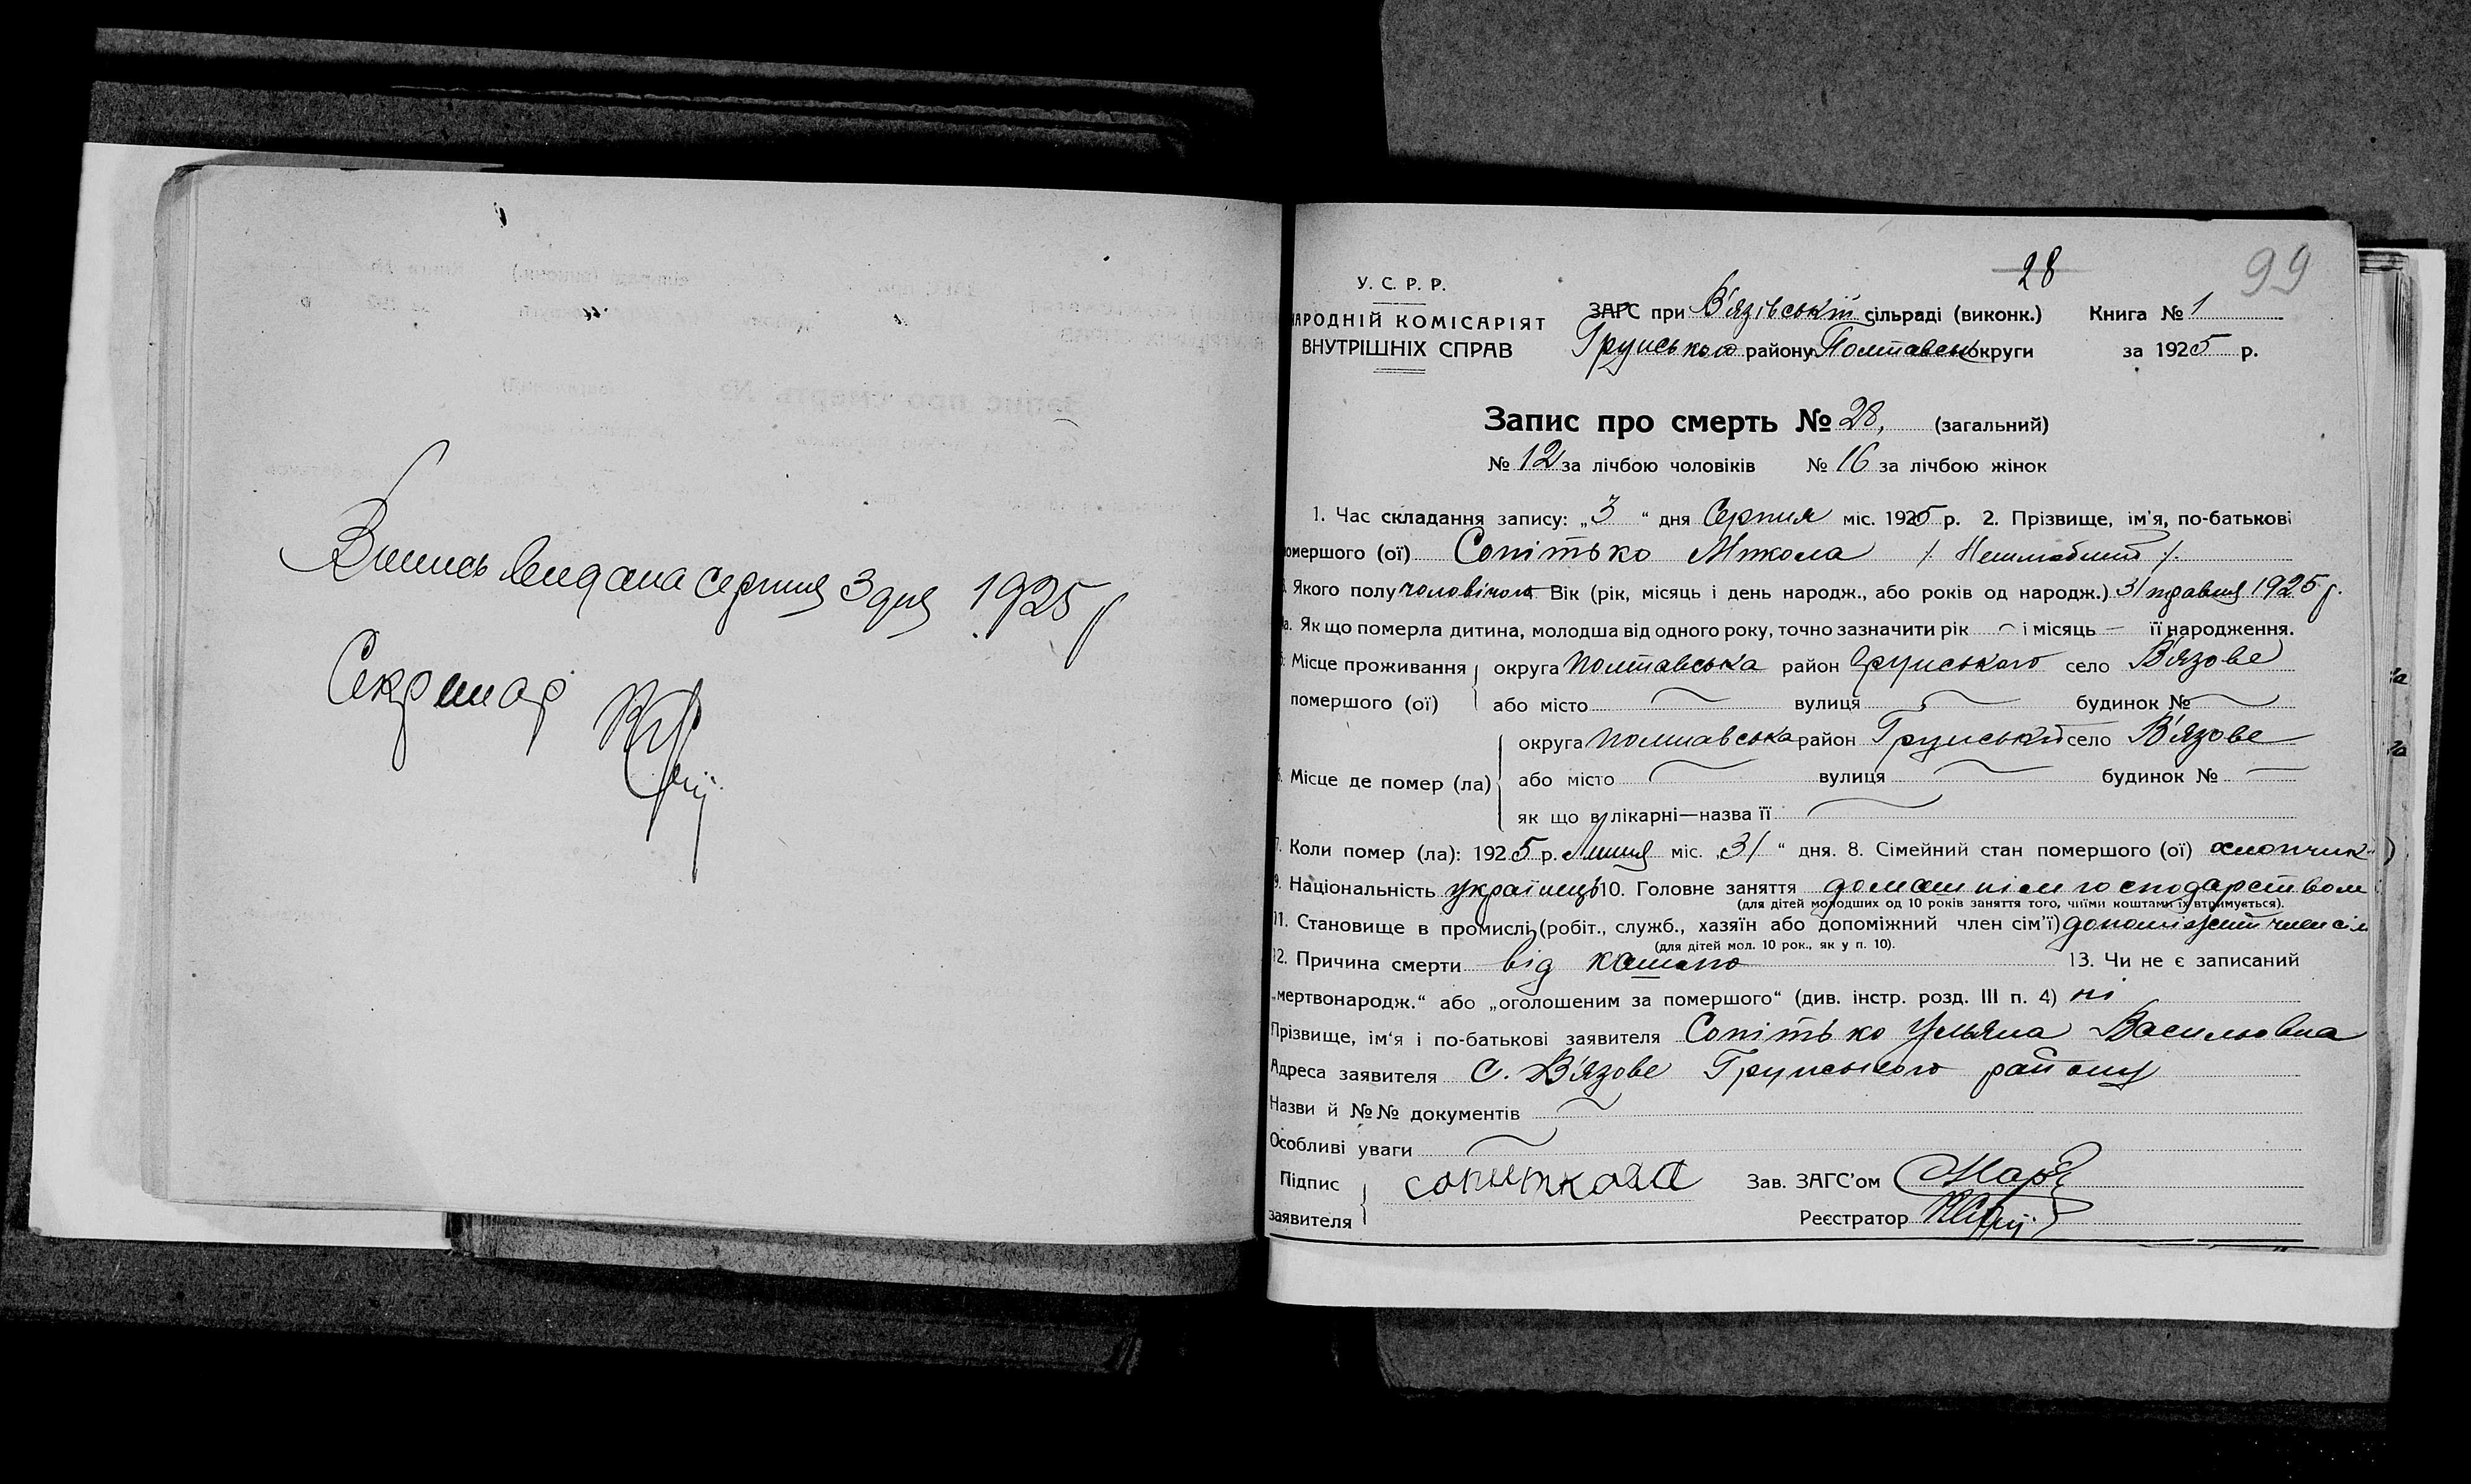 Випись видана серпня 3 дня 1925 р
Секретар
28
99
У. С. Р. Р.
НАРОДНІЙ КОМІСАРІЯТ
ВНУТРІШНІХ СПРАВ
ЗАГС при Вʼязівській сільраді (виконк.) Книга № 1
Грунського району Полтавськ округи за 1925 р.
Запис про смерть № 28, (загальний)
№ 12 за лічбою чоловіків № 16 за лічбою жінок
1. Час складання запису: „3“ дня Серпня міс. 1925 р. 2. Прізвище, ім'я, по-батькові
помершого (ої) Сопітько Микола
Якого полу чоловічого Вік (рік, місяць і день народж., або років од народж.) 31 травня 1925 р.
а. Як що померла дитина, молодша від одного року, точно зазначити рік — і місяць — її народження.
Місце проживання округа Полтавська район Грунського село Вʼязове
помершого (ої) або місто — вулиця — будинок № —
округа Полтавська район Грунський село Вʼязове
Місце де помер (ла) або місто — вулиця — будинок № —
як що в лікарні—назва її —
7. Коли помер (ла): 1925 р. Липня міс. „31“ дня. 8. Сімейний стан помершого (ої) хлопчик
9. Національність українець 10. Головне заняття домашнім господарством
(для дітей молодших од 10 років заняття того, чиїми коштами їх втримується).
11. Становище в промислі (робіт., служб., хазяїн або допоміжний член сім'ї) допоміжний член сім
(для дітей мол. 10 рок., як у п. 10).
12. Причина смерти від кашлю 13. Чи не є записаний
„мертвонародж.“ або „оголошеним за помершого“ (див. інстр. розд. III п. 4) ні
Прізвище, ім'я і по-батькові заявителя Сопітько Ульяна Васильовна
Адреса заявителя С. Вʼязове Грунського району
Назви й №№ документів —
Особливі уваги —
Підпис сопиткова Зав. ЗАГС'ом
заявителя Реєстратор